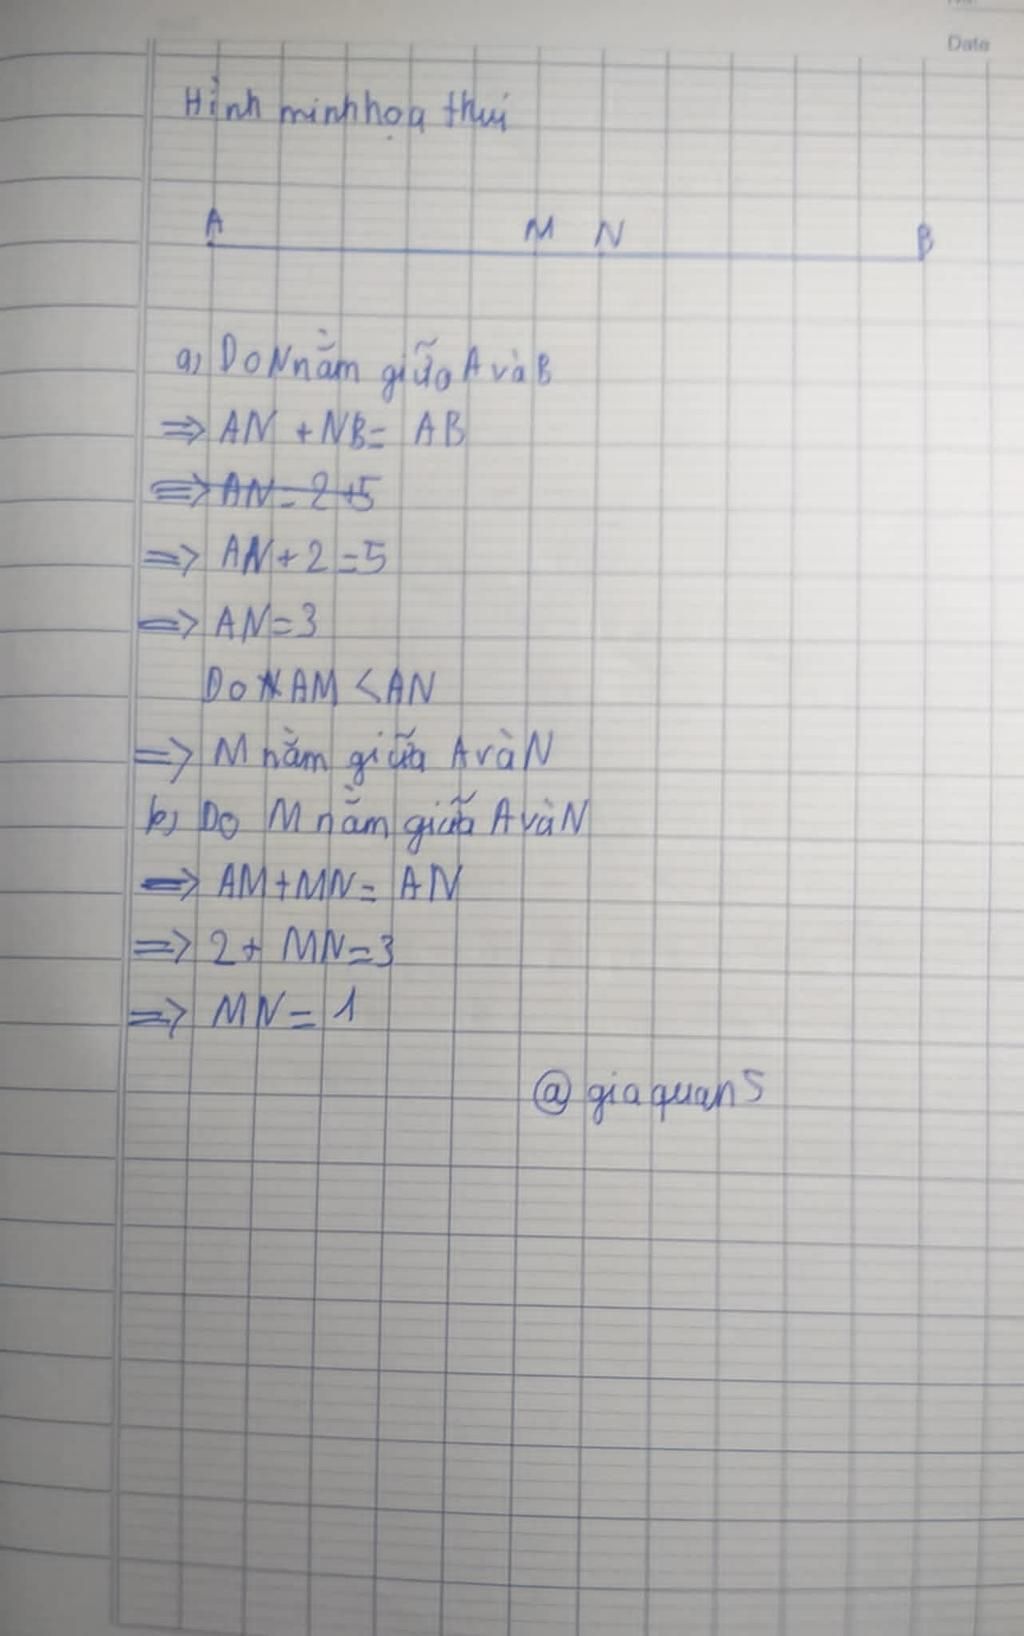 Date
Hình minh họa thui
A M N B
a) Do N nằm giữa A và B
=> AN + NB = AB
=> AN = 2 + 5
=> AN + 2 = 5
=> AN = 3
Do AM < AN
=> M nằm giữa A và N
b) Do M nằm giữa A và N
=> AM + MN = AN
=> 2 + MN = 3
=> MN = 1
@giaquan5